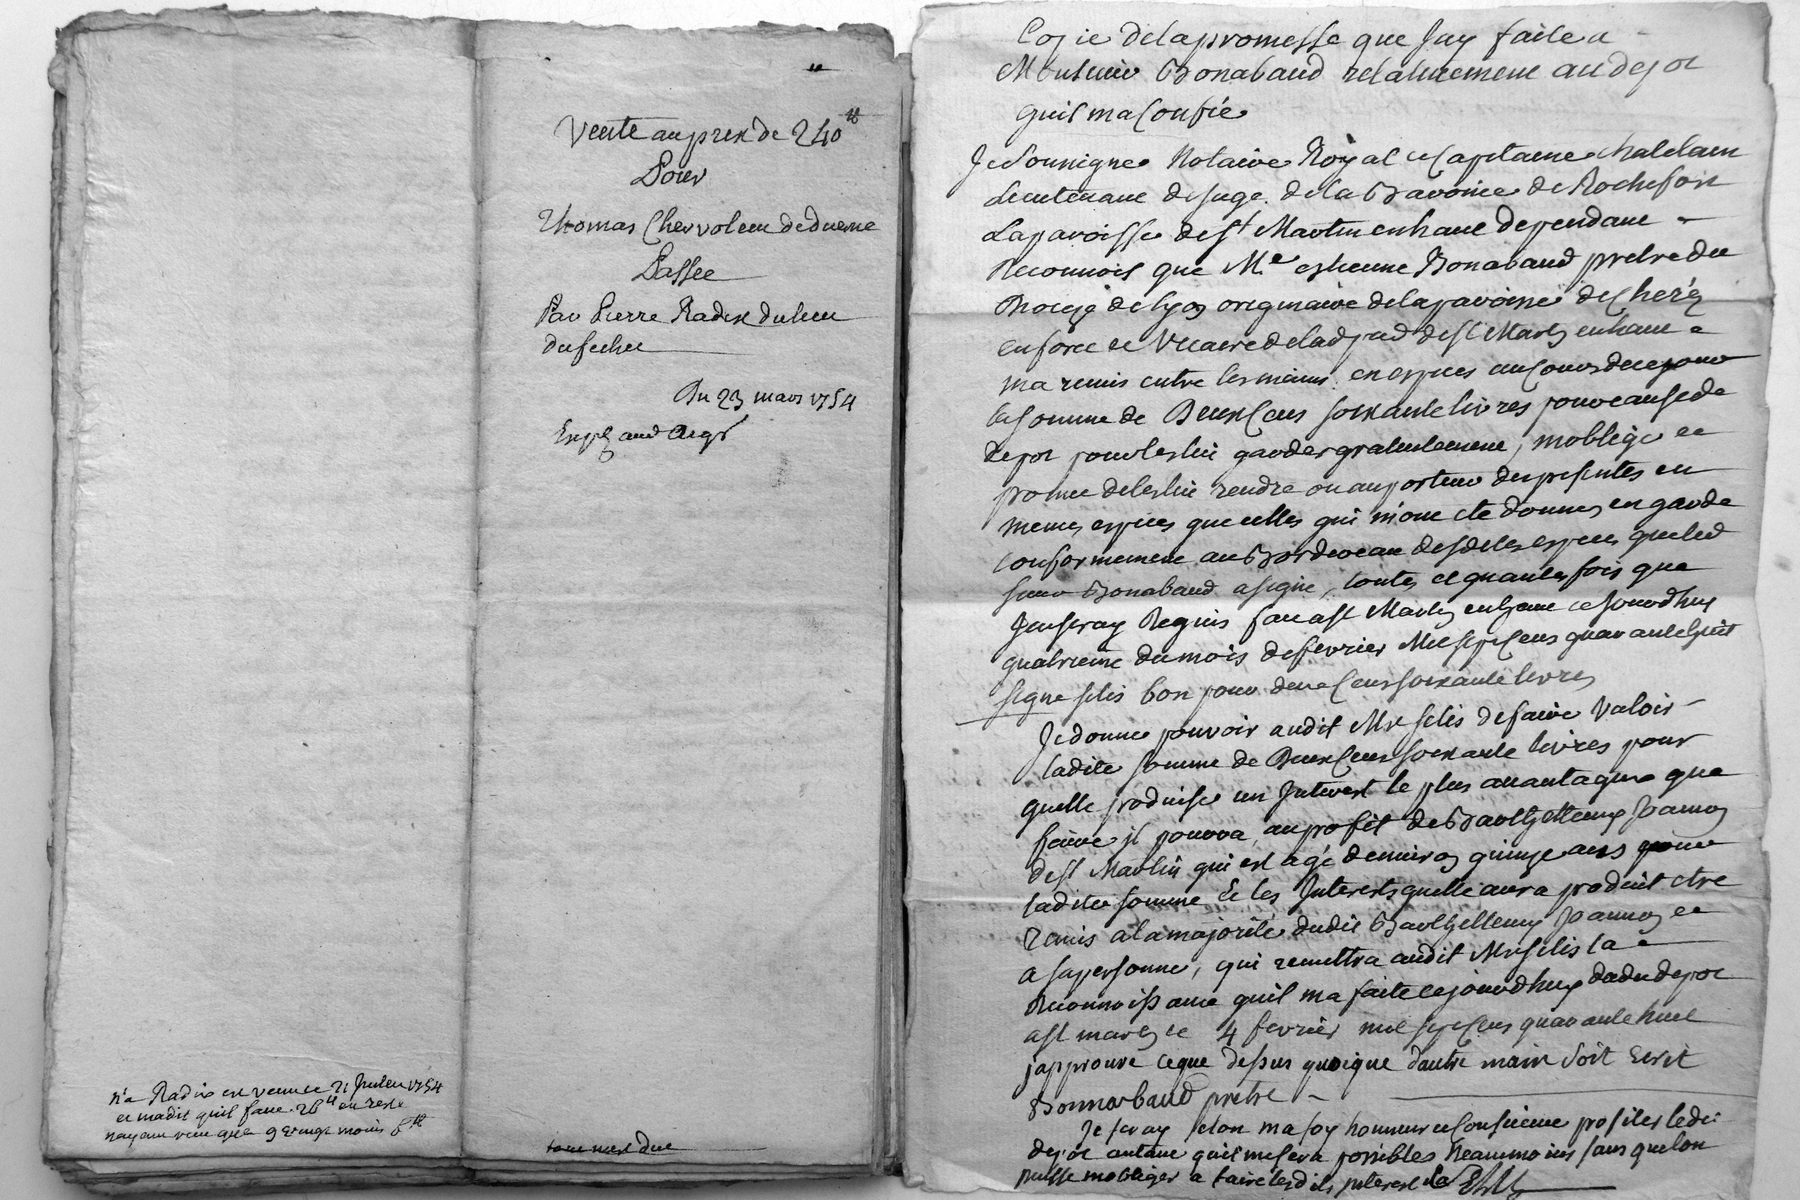 Vente au prix de 240 ₶
Pour
Thomas Chervolem de duerne
Passée
Par Pierre Radix du lieu
du fechu
Du 23 mars 1754
Exp͠ and
n'a Radix est venu ce 21 Juilen 1754
et madit quil faut 26 ₶ en reste
nayant recu que 9 moins
tout mest due
Copie delapromesse que Jay faite a
Monsieur Bonabaud relativement au depot
quil ma Confié
Je Soussigne Notaire Royal et Capitaine chatelain
Lieutenant de juge de la Baronnie de Rochefort
Laparoisse de St Martin enhaut dependant
Reconnois que Me estienne Bonabaud pretre du
Diocese de lyon originaire de laparoisse de
en forez et Vicaire delad par de St Martin enhaut
ma remis entre les mains en especes au Cours decejour
la somme de Deux Cens soixante livres pour cause de
depot pour les lui garder gratuitement, moblige et
promet deles lui rendre ou au porteur des presentes en
memes especes que celles qui m'ont ete donnes en garde
conformement au Bordereau desdites especes queled
sieur Bonabaud a signe, toutes et quantes fois que
Jen seray Requis fait a St Martin enhaut ce Jourdhuy
quatrieme du mois de fevrier Mil sept Cens quarante huit
signe selis bon pour deux Cens soixante livres
Je donne pouvoir audit Mre selis de faire Valoir
ladite somme de Deux Cens soixante livres pour
quelle produise un Interest le plus avantageux que
faire se pourra, au profit de Barthellemy Joannon
de St Martin qui est agé denviron quinze ans pour
ladite somme Et les Interests quelle aura produit etre
remis a lamajorité dudit Barthellemy Joannon et
a sapersonne, qui remettra audit Mre selis la
Reconnoissance quil ma faite cejourdhuy dudit depot
a St martin ce 4 fevrier mil sept Cens quarante huit
japprouve ceque dessus quoique dautre main soit Ecrit
Bonnabaud pretre
Je feray selon ma foy honneur et Consience profiter ledit
depot autant quil me sera possibles Neanmoins sans quelon
puisse mobliger a faire lesdits Interest